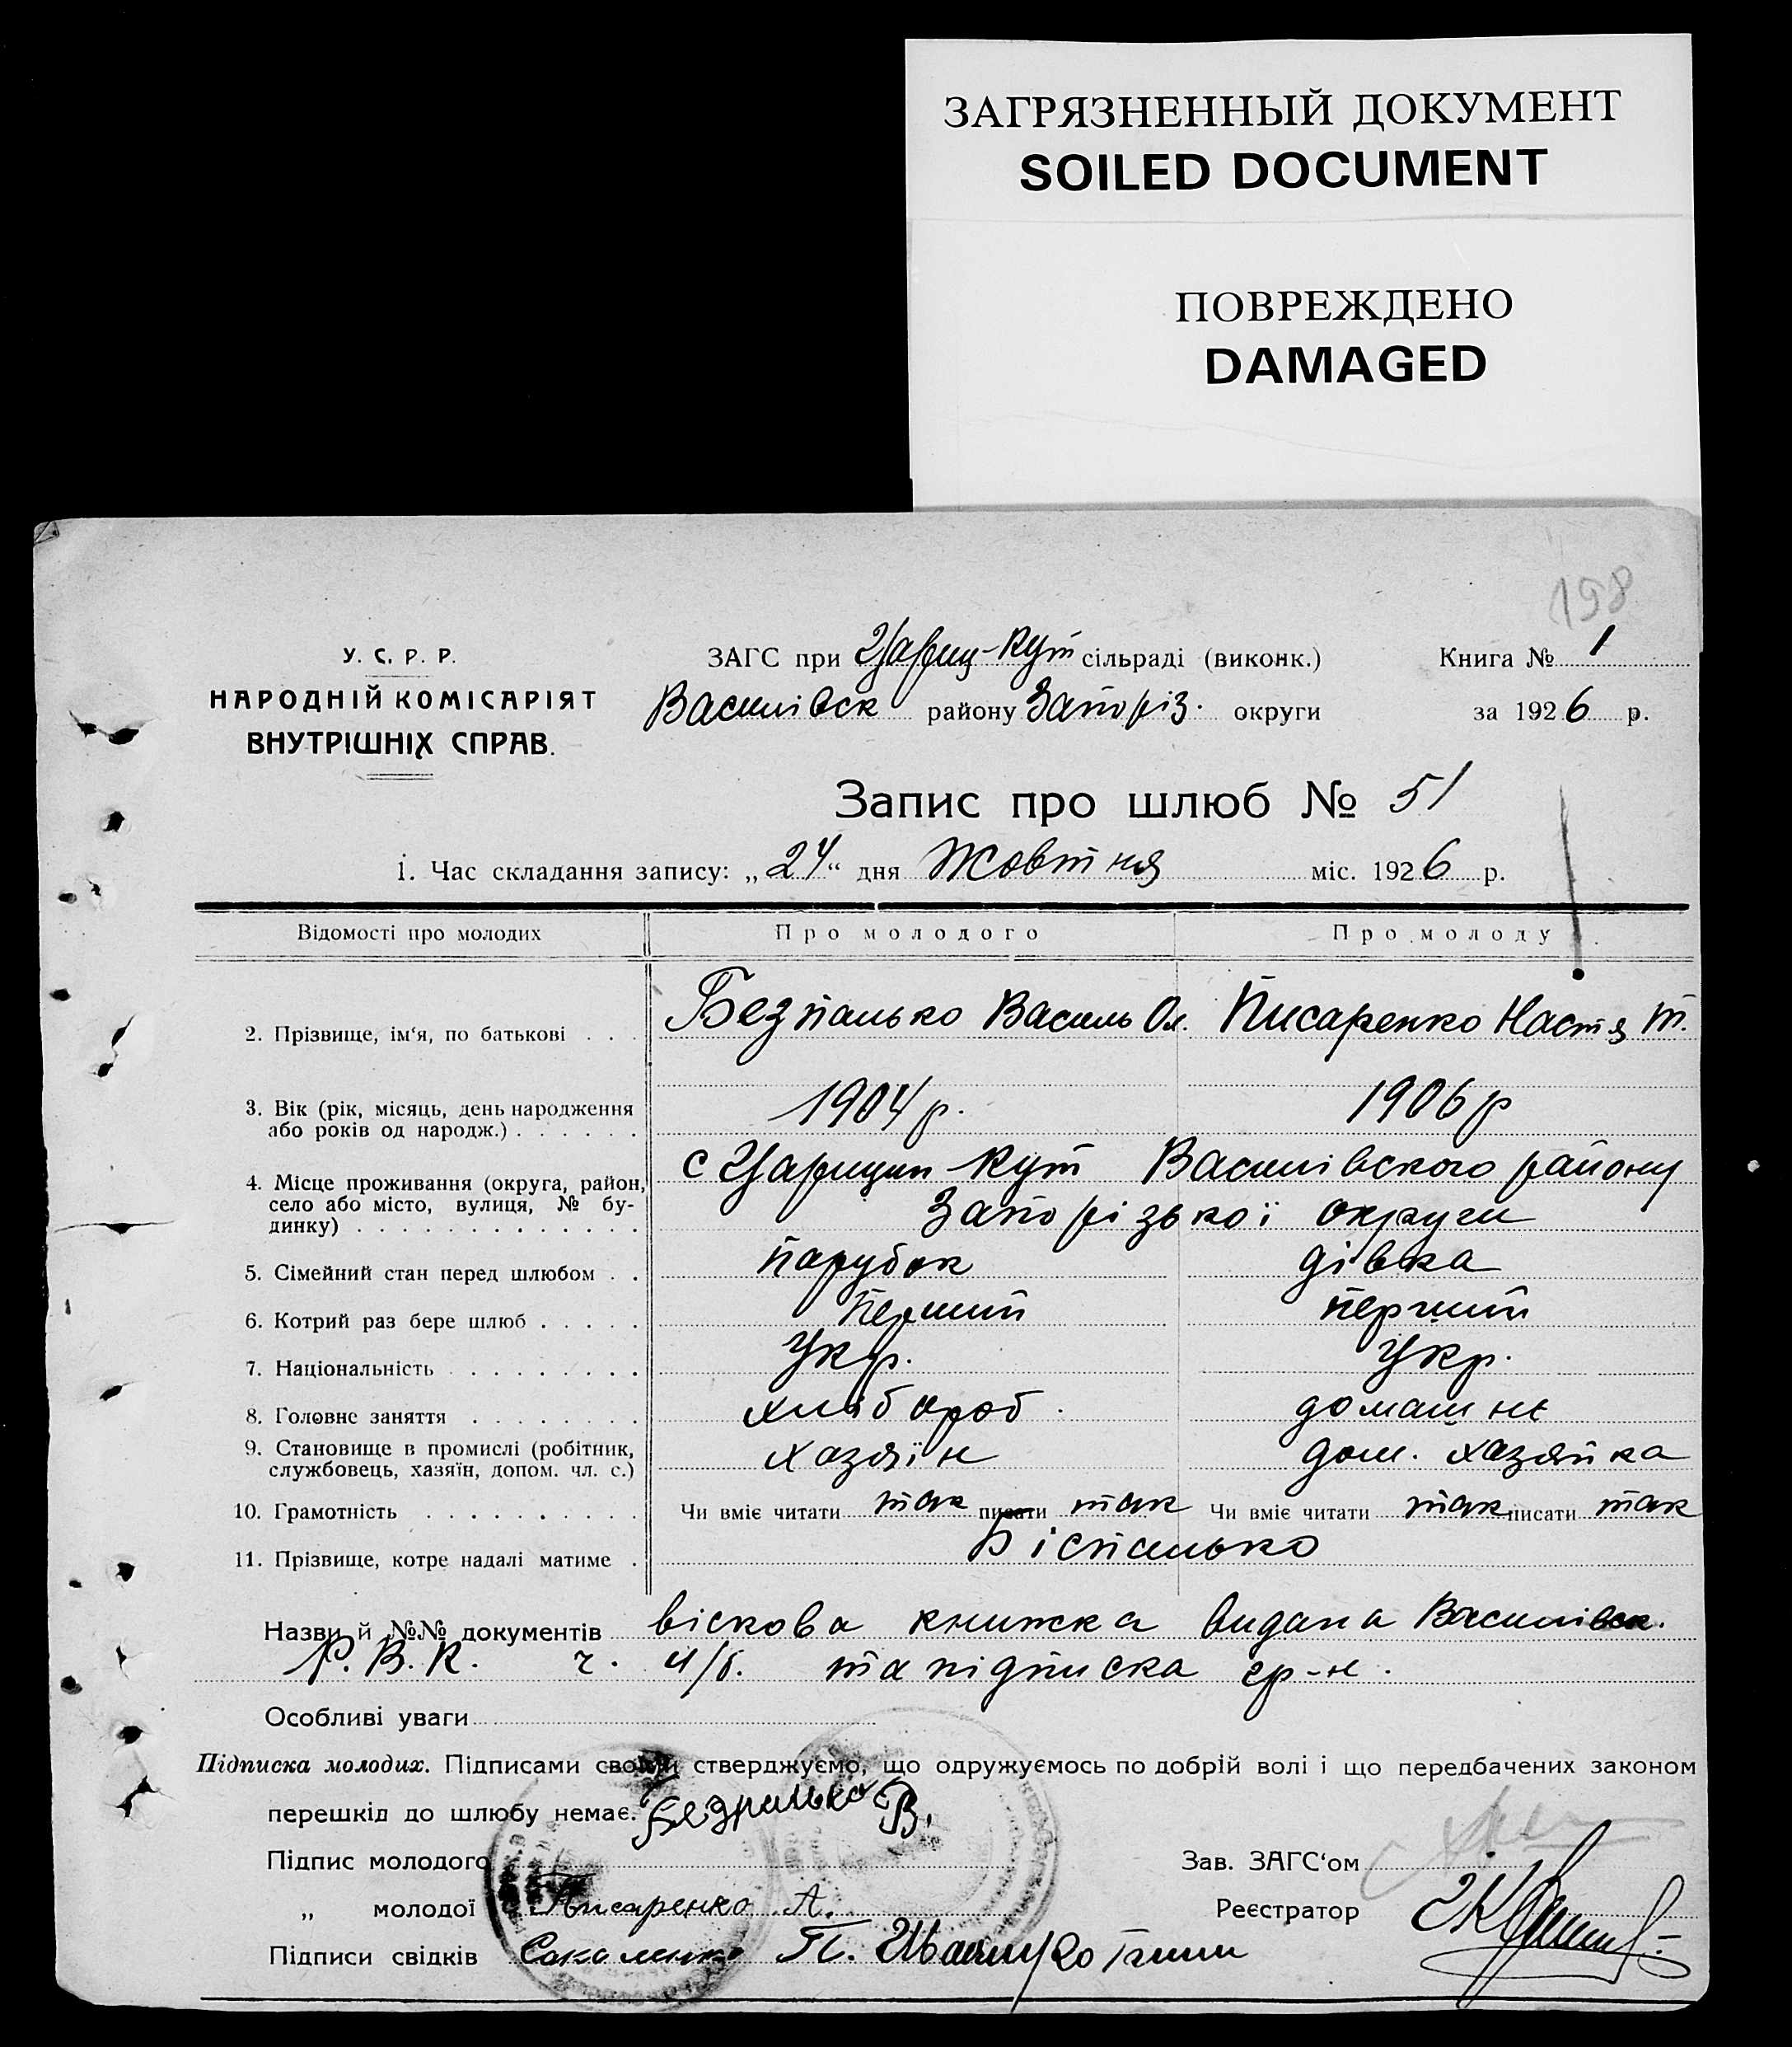 ЗАГРЯЗНЕННЫЙ ДОКУМЕНТ
SOILED DOCUMENT
ПОВРЕЖДЕНО
DAMAGED
198
У. С. Р. Р.
НАРОДНІЙ КОМІСАРІЯТ
ВНУТРІШНІХ СПРАВ.
ЗАГС при Цариц-Кут сільраді (виконк.)
Василівск району Запоріз. округи
Книга № 1
за 1926 р.
Запис про шлюб № 51
1. Час складання запису: „24“ дня Жовтня міс. 1926 р.
Відомості про молодих Про молодого Про молоду
2. Прізвище, ім'я, по батькові . . . Безпалько Василь Ол. Писаренко Настя Т.
3. Вік (рік, місяць, день народження
або років од народж.) . . . . . . 1904 р. 1906 р
4. Місце проживання (округа, район,
село або місто, вулиця, № бу-
динку) . . . . . . . . . . . . .
с Царицин Кут Василівского району
Запорізької округи
5. Сімейний стан перед шлюбом . . парубок дівка
6. Котрий раз бере шлюб . . . . . перший перший
7. Національність . . . . . . . . . Укр. Укр.
8. Головне заняття . . . . . . . . хлібороб. домашнє
9. Становище в промислі (робітник,
службовець, хазяїн, допом. чл. с.) хазяїн дом. хазяйка
10. Грамотність . . . . . . . . . . Чи вміє читати так писати так Чи вміє читати так писати так
11. Прізвище, котре надалі матиме . Біспалько
Назви й №№ документів віскова книжка видана Василівск.
Р. В. К. ч. та підписка гр-н.
Особливі уваги
Підписка молодих. Підписами своїми стверджуємо, що одружуємось по добрій волі і що передбачених законом
перешкід до шлюбу немає. Безпалько В.
Підпис молодого
„ молодої Писаренко А.
Підписи свідків П.
Зав. ЗАГС'ом
Реєстратор